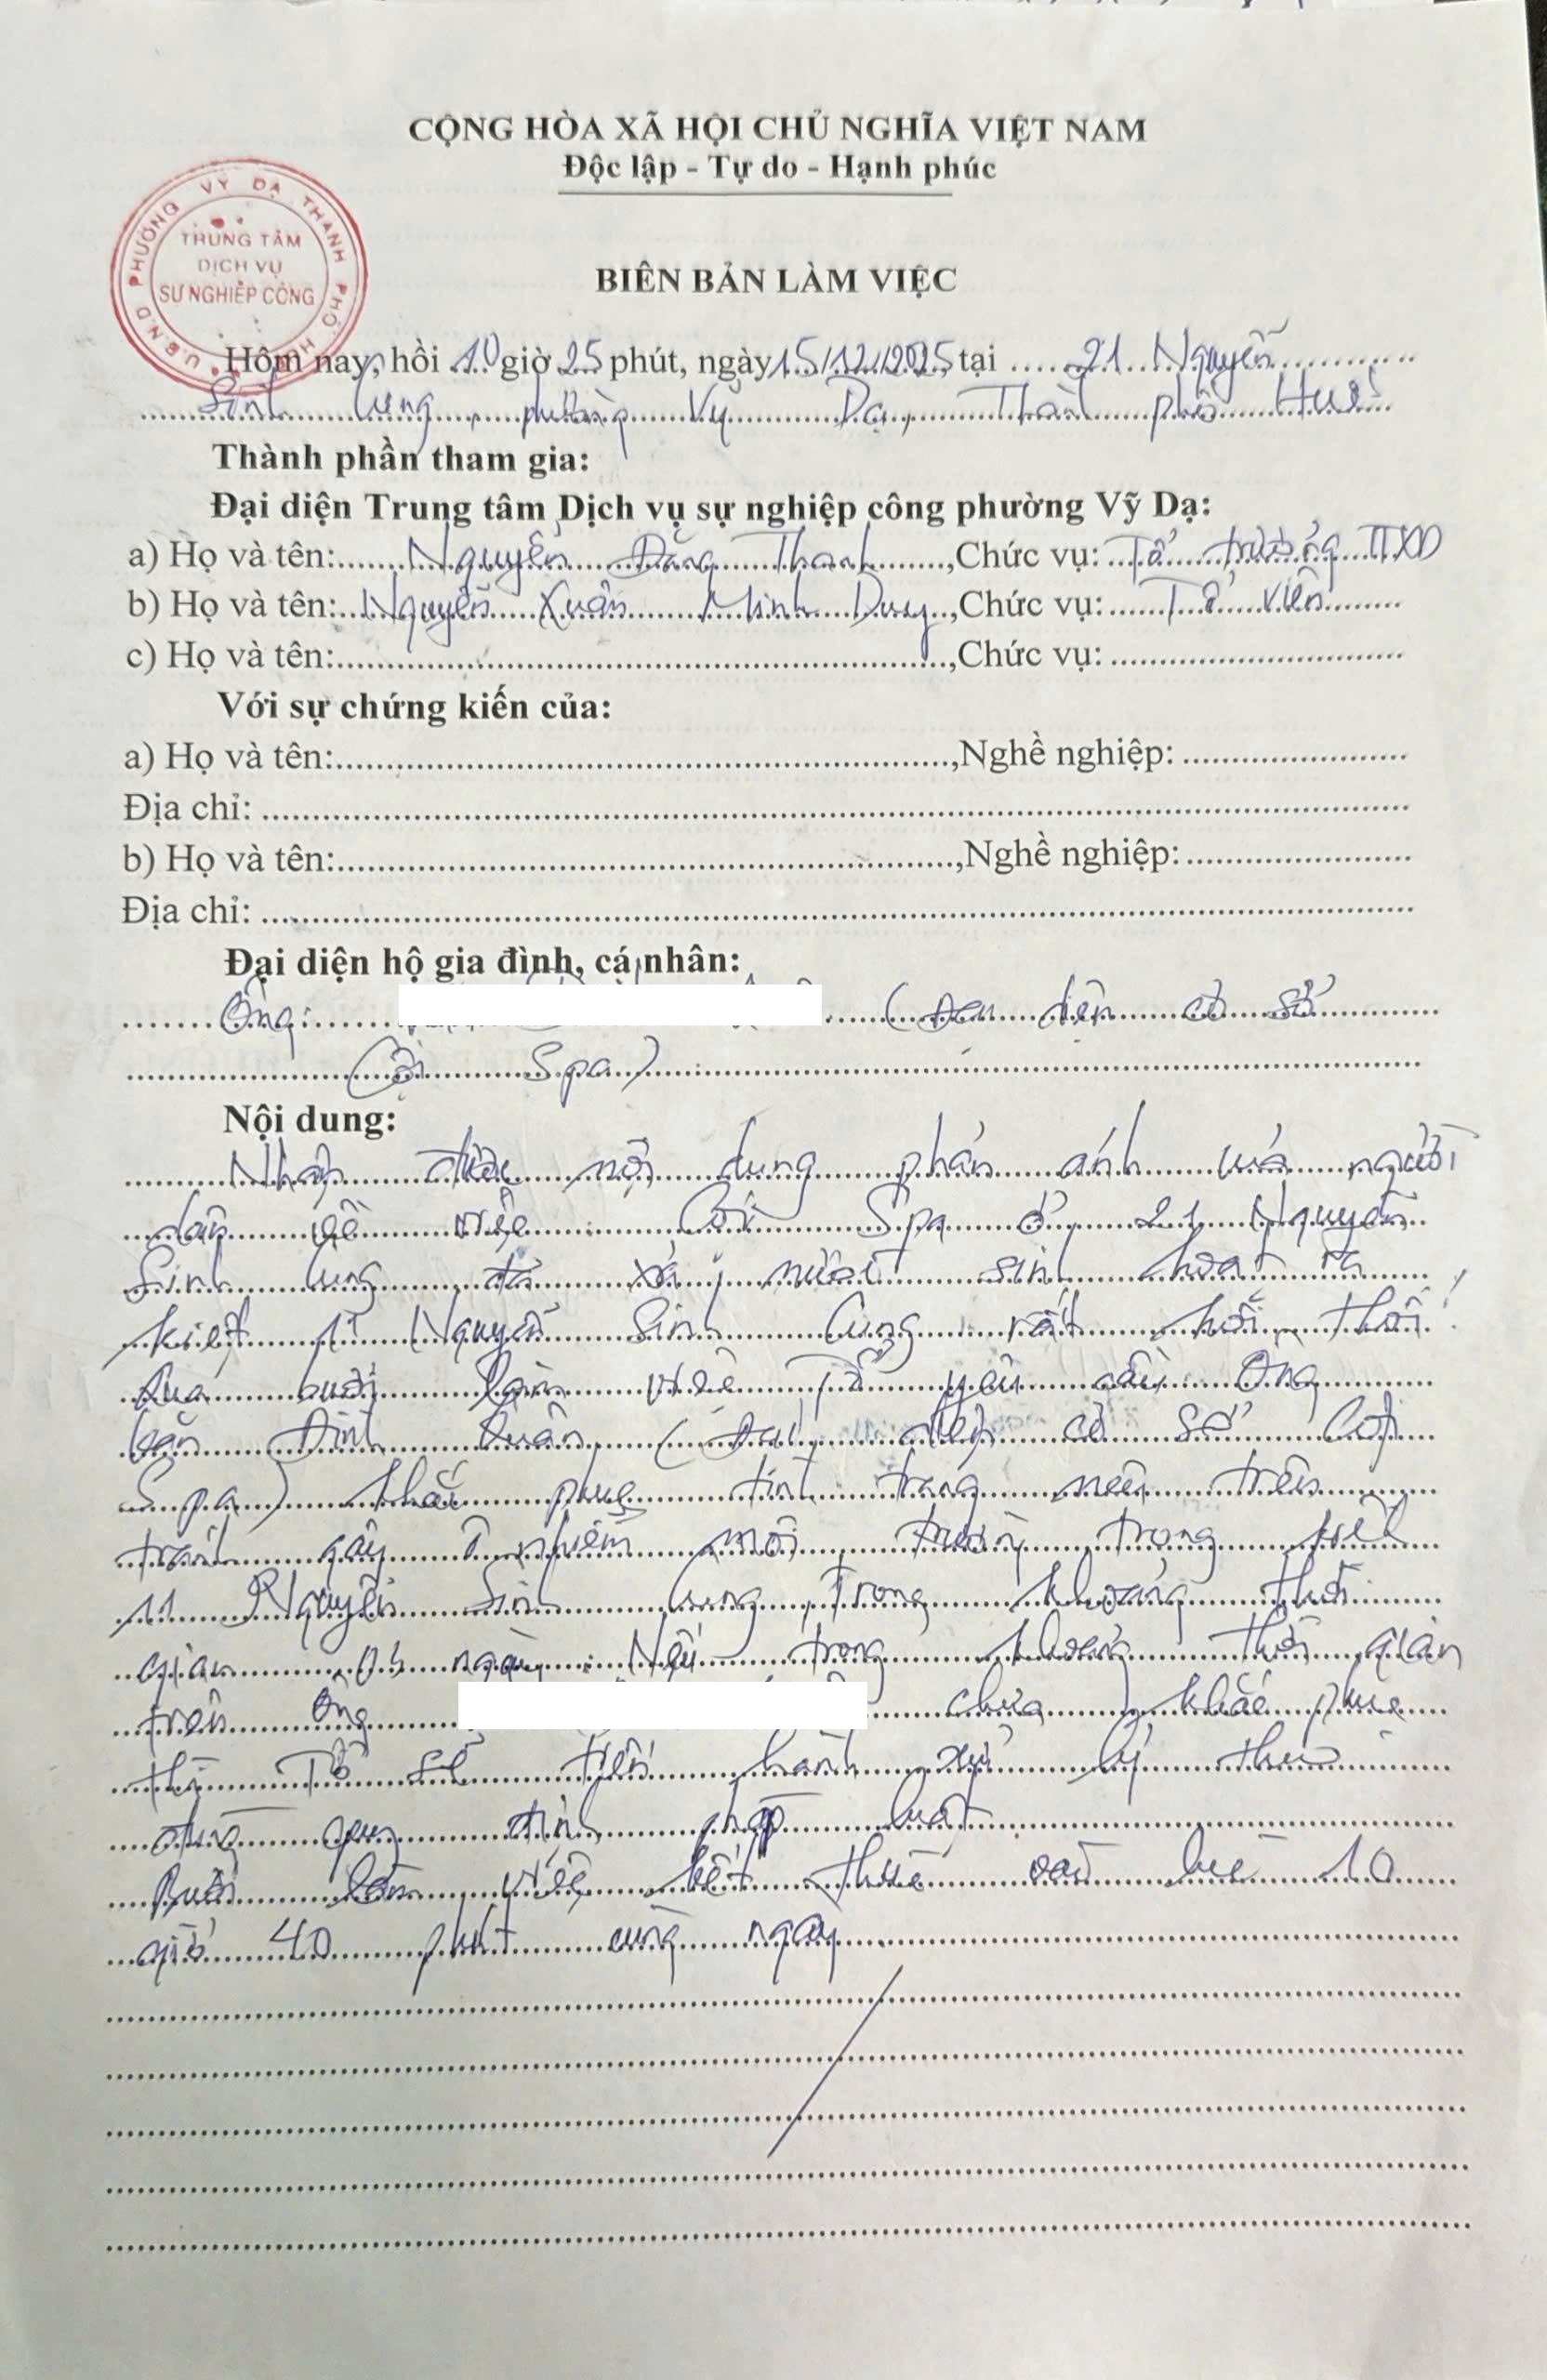 CỘNG HÒA XÃ HỘI CHỦ NGHĨA VIỆT NAM
Độc lập - Tự do - Hạnh phúc
U.B.N.D PHƯỜNG VỸ DẠ THÀNH PHỐ HUẾ
TRUNG TÂM
DỊCH VỤ
SỰ NGHIỆP CÔNG
BIÊN BẢN LÀM VIỆC
Hôm nay, hồi 10 giờ 25 phút, ngày 15/12/2025, tại 21 Nguyễn
Sinh Cung, phường Vỹ Dạ, Thành phố Huế
Thành phần tham gia:
Đại diện Trung tâm Dịch vụ sự nghiệp công phường Vỹ Dạ:
a) Họ và tên: Nguyễn Đăng Thanh, Chức vụ: Tổ trưởng TTXD
b) Họ và tên: Nguyễn Xuân Minh Duy, Chức vụ: Tổ viên
c) Họ và tên:, Chức vụ:
Với sự chứng kiến của:
a) Họ và tên:, Nghề nghiệp:
Địa chỉ:
b) Họ và tên:, Nghề nghiệp:
Địa chỉ:
Đại diện hộ gia đình, cá nhân:
Ông: (Đại diện cơ sở
Cội Spa)
Nội dung:
Nhận được nội dung phản ánh của người
dân về việc Cội Spa ở 21 Nguyễn
Sinh Cung đã xả nước sinh hoạt ra
kiệt 11 Nguyễn Sinh Cung rất hôi thối.
Qua buổi làm việc Tổ yêu cầu Ông
Đình Quân (Đại diện cơ sở Cội
Spa) khắc phục tình trạng nêu trên
tránh gây ô nhiễm môi trường trong kiệt
11 Nguyễn Sinh Cung, Trong khoảng thời
gian ngày. Nếu trong khoảng thời gian
trên Ông chưa khắc phục
thì Tổ sẽ tiến hành xử lý theo
đúng quy định pháp luật
Buổi làm việc kết thúc vào lúc 10
giờ 40 phút cùng ngày